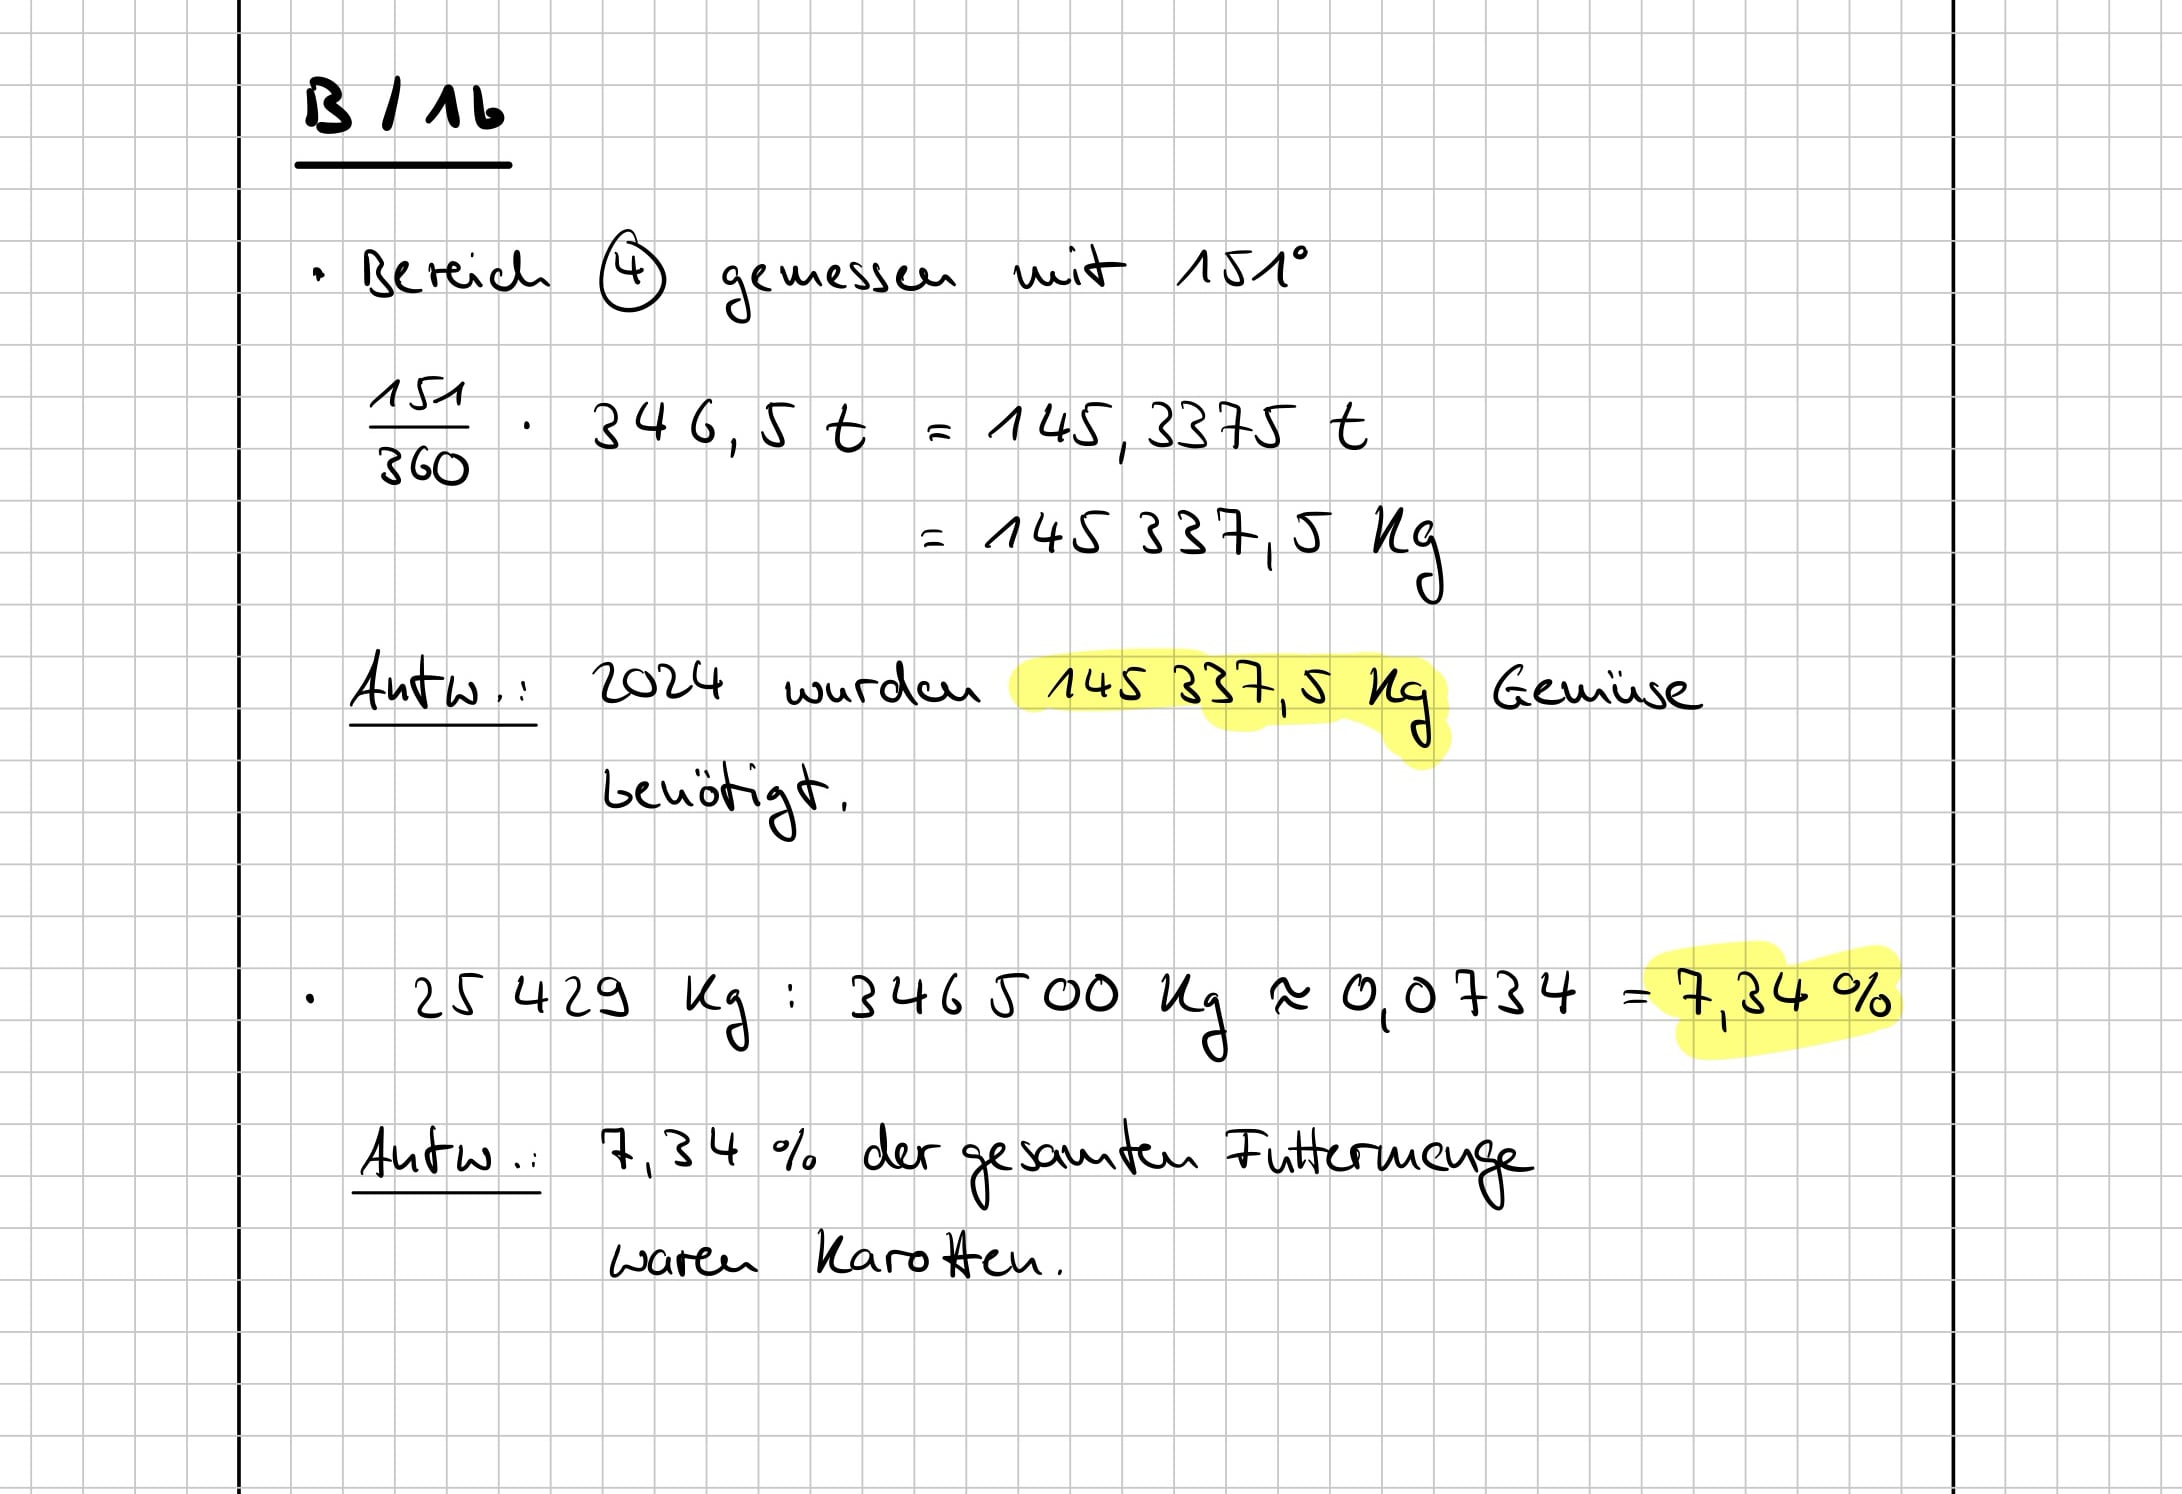 B / 1b
• Bereich ④ gemessen mit 151°
151/360 · 346,5 t = 145,3375 t
= 145 337,5 Kg
Antw.: 2024 wurden 145 337,5 Kg Gemüse
benötigt.
• 25 429 Kg : 346 500 Kg ≈ 0,0734 = 7,34 %
Antw.: 7,34 % der gesamten Futtermenge
waren Karotten.